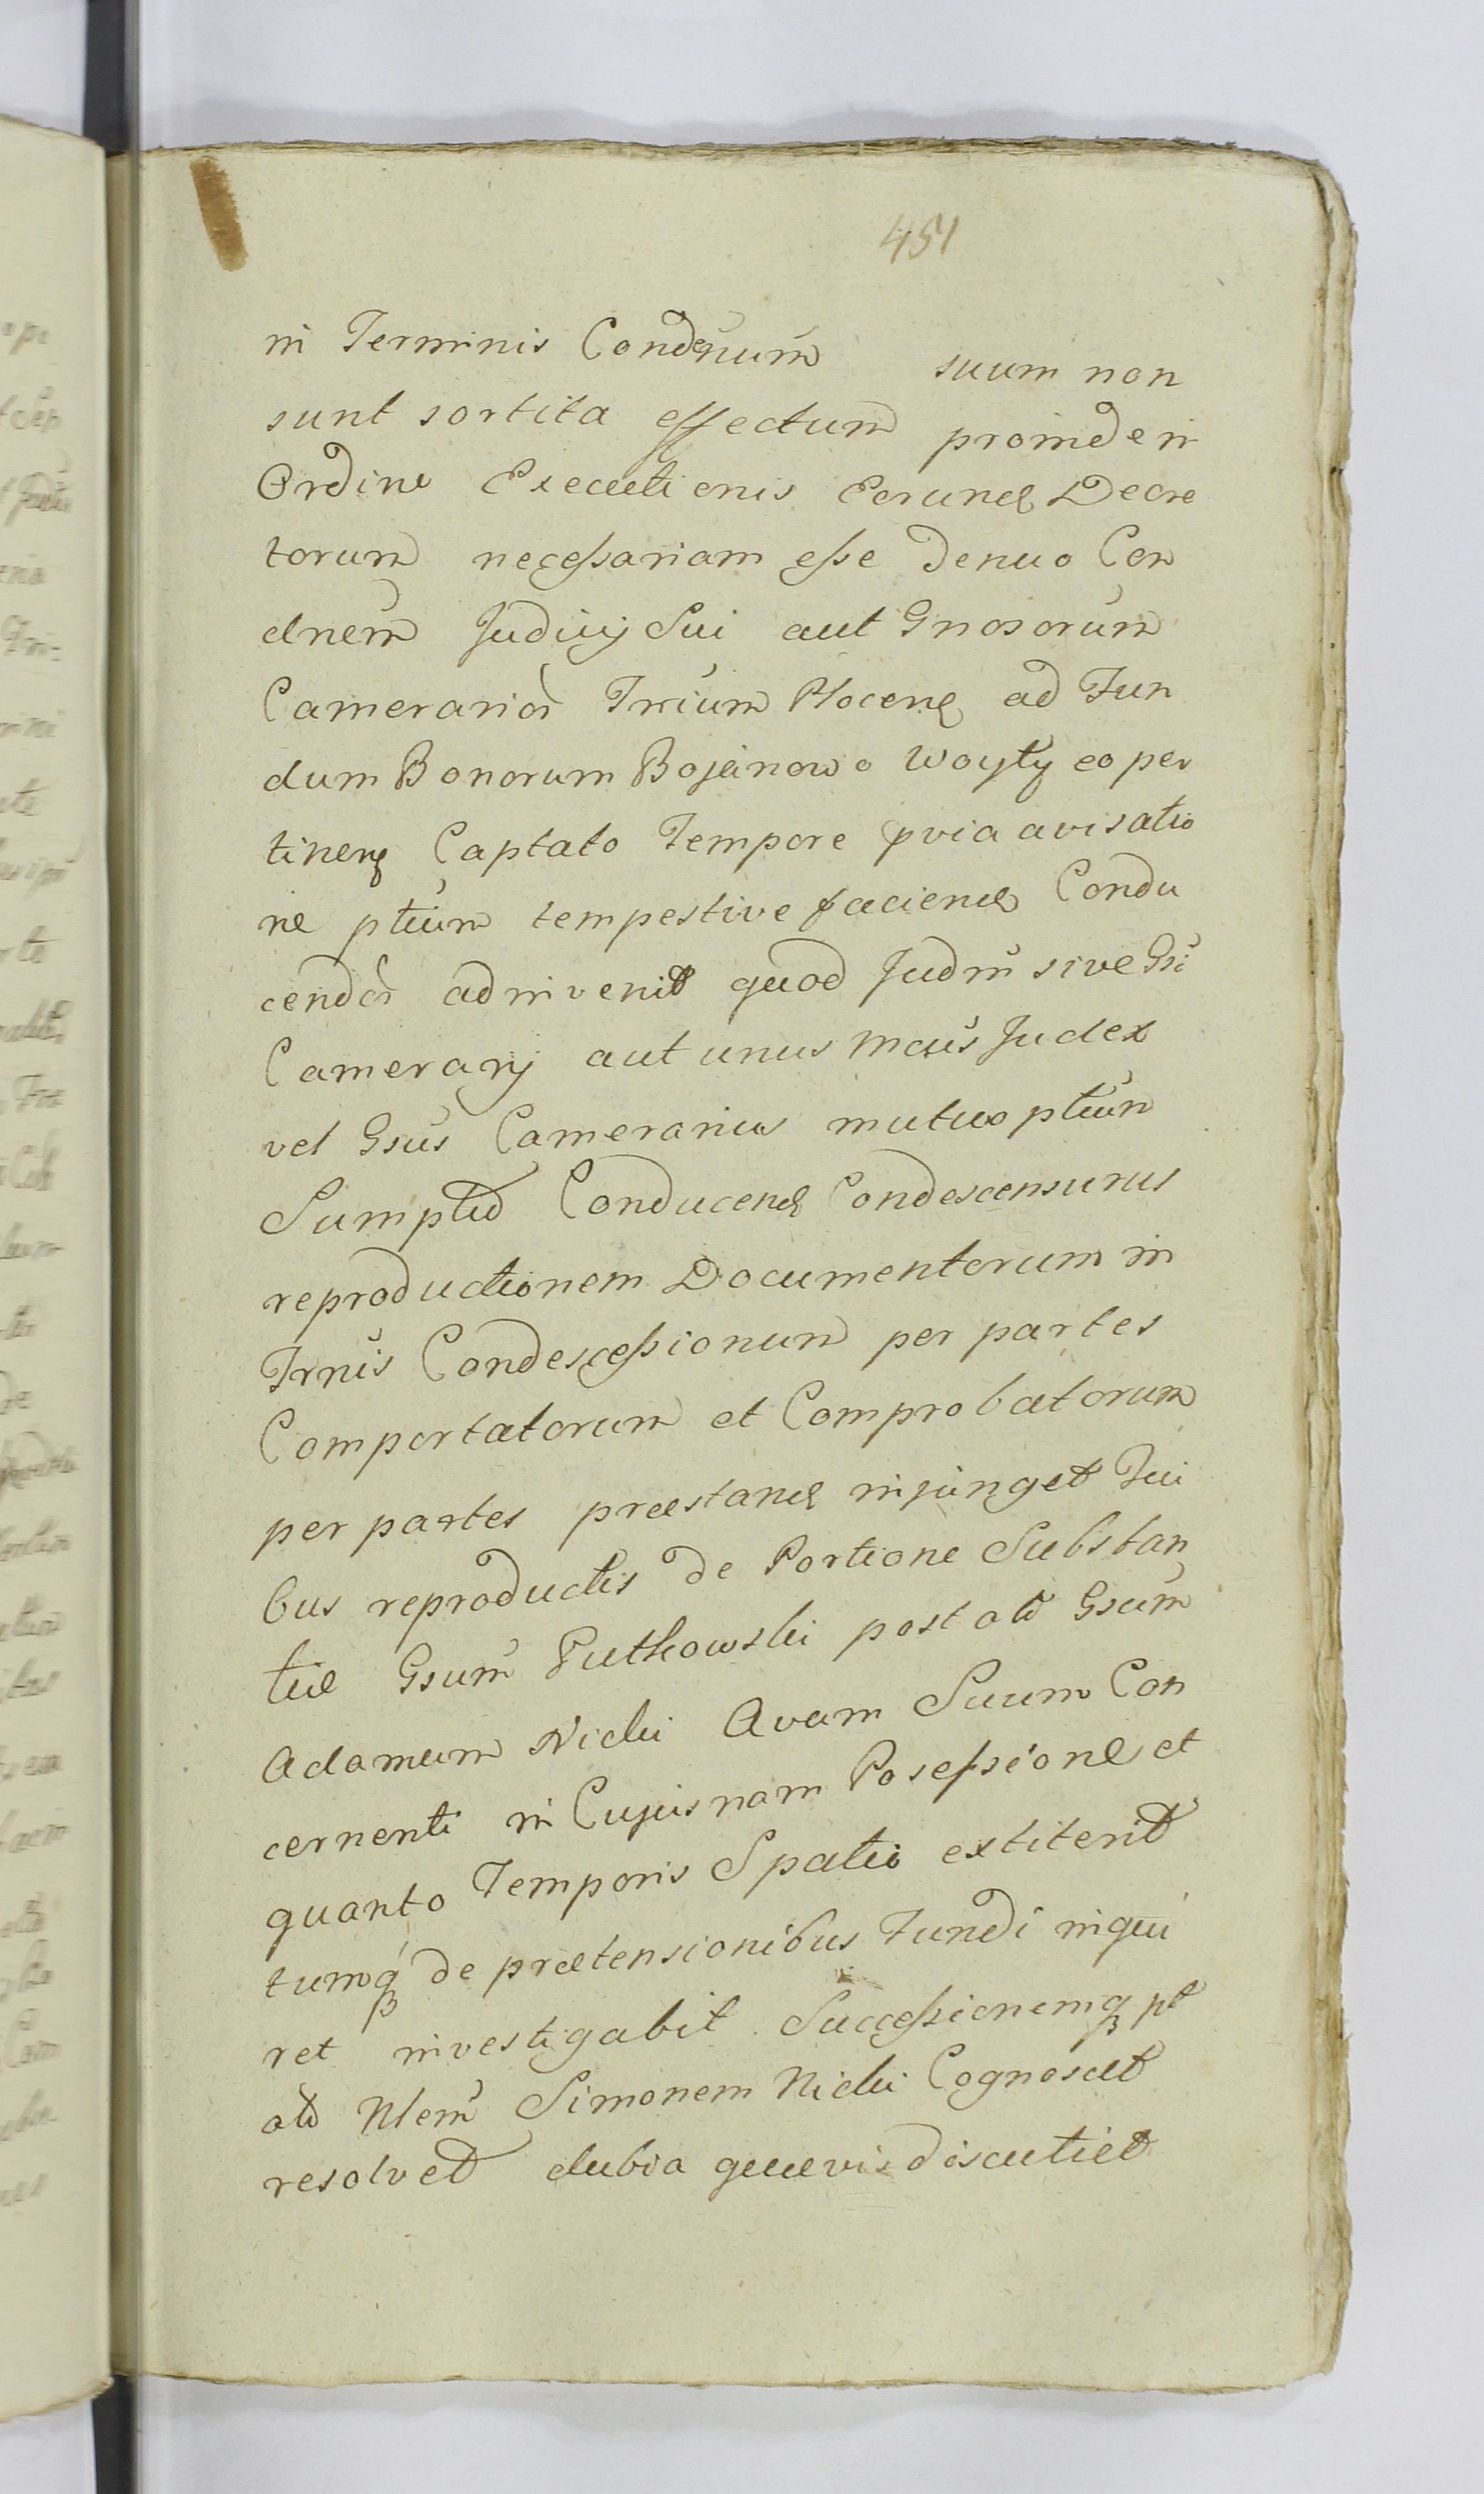 451
in Terminis Condnum suum non
sunt sortita effectum proinde in
Ordine Executionis Eorund Decre
torum necessariam esse denuo Con
dnem Judicij Sui aut Gnosorum
Camerarior Trium Plocens ad Fun
dum Bonorum Bojanowo Woyty eo per
tinens Captato Tempore pvia avisatio
ne ptium tempestive faciend Condu
cendor adinvenit quod Judm sive Gsi
Camerarij aut unus Mcus Judex
vel Gsus Camerarius mutuo ptium
Sumptu Conducend Condescensurus
reproductionem Documentorum in
Trnis Condescessionum per partes
Comportatorum et Comprobatorum
per partes præstand injunget Qui
bus reproductis de Portione Substan
tiæ Gsum Putkowski post olim Gsum
Adamum Nicki Avum Suum Con
cernenti in Cujusnam Posessione et
quanto Temporis Spatio extiterit
tumq de prætensionibus Fundi inqui
ret investigabit Successionemq pt
olim Nlem Simonem Nicki Cognoscet
resolvet dubia quævis discutiet